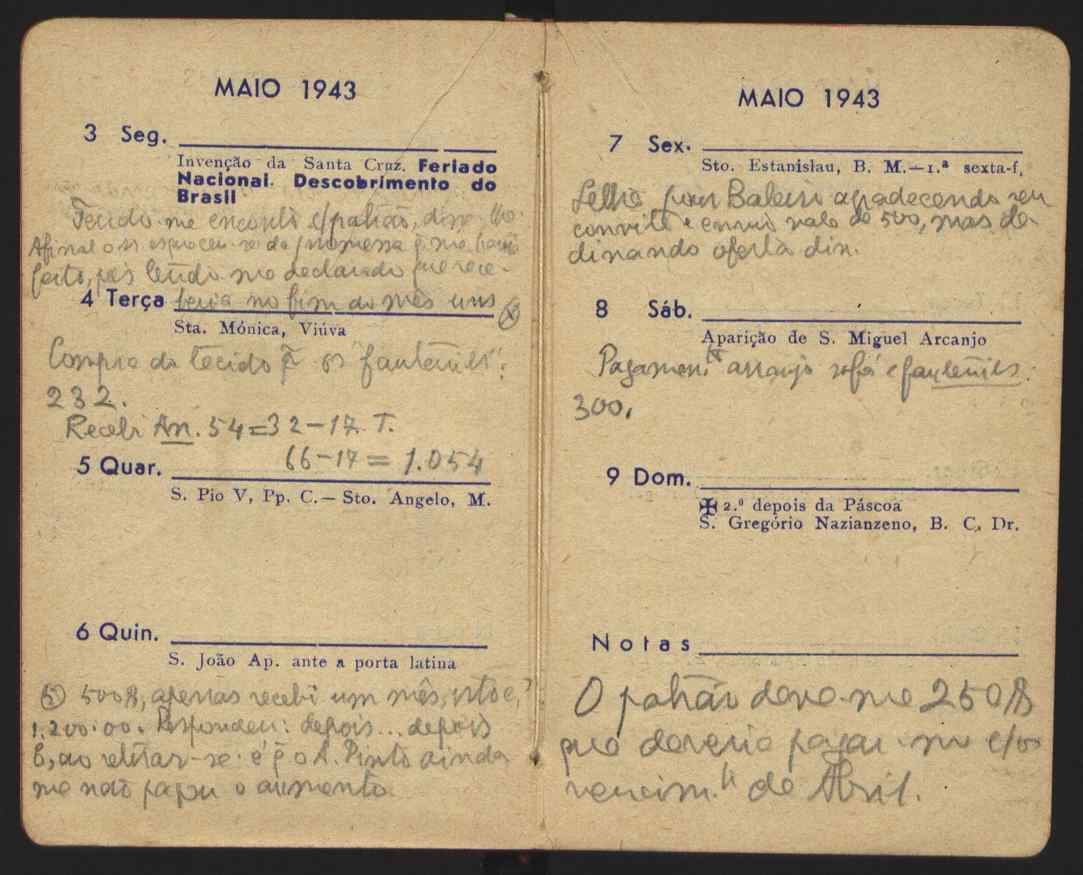 MAIO 1943
3 Seg.
Invenção da Santa Cruz. Feriado
Nacional. Descobrimento do
Brasil
Tendo me encontr c/patrão, disse-lho
Afinal o sr esqueceu-se da promessa q̃ me havia
feito, pois tendo me declarado que rece-
4 Terça beria no fim do mês uns (x)
Sta. Mónica, Viúva
Compra do tecido p̃ os "fauteuils":
232.
Recebi An. 54=32-17. T.
5 Quar. 66-17= 1.054
S. Pio V, Pp. C.— Sto. Angelo, M.
6 Quin.
S. João Ap. ante a porta latina
(x) 500$, apenas recebi um mês, isto é,
1.200.00. Respondeu: depois... depois
E, ao retirar-se: é q̃ o A. Pinto ainda
me não pagou o aumento.
MAIO 1943
7 Sex.
Sto. Estanislau, B. M.—1.ª sexta-f.
para Baleiro agradecendo seu
convite e envio vale de 500, mas de-
clinando oferta din.
8 Sáb.
Aparição de S. Miguel Arcanjo
Pagamenᵗᵒ arranjo sofá e fauteuils:
300.
9 Dom.
✠ 2.º depois da Páscoa
S. Gregório Nazianzeno, B. C. Dr.
Notas
O patrão deve-me 250$
que deveria pagar-me c/os
vencim.ᵗᵒˢ de Abril.